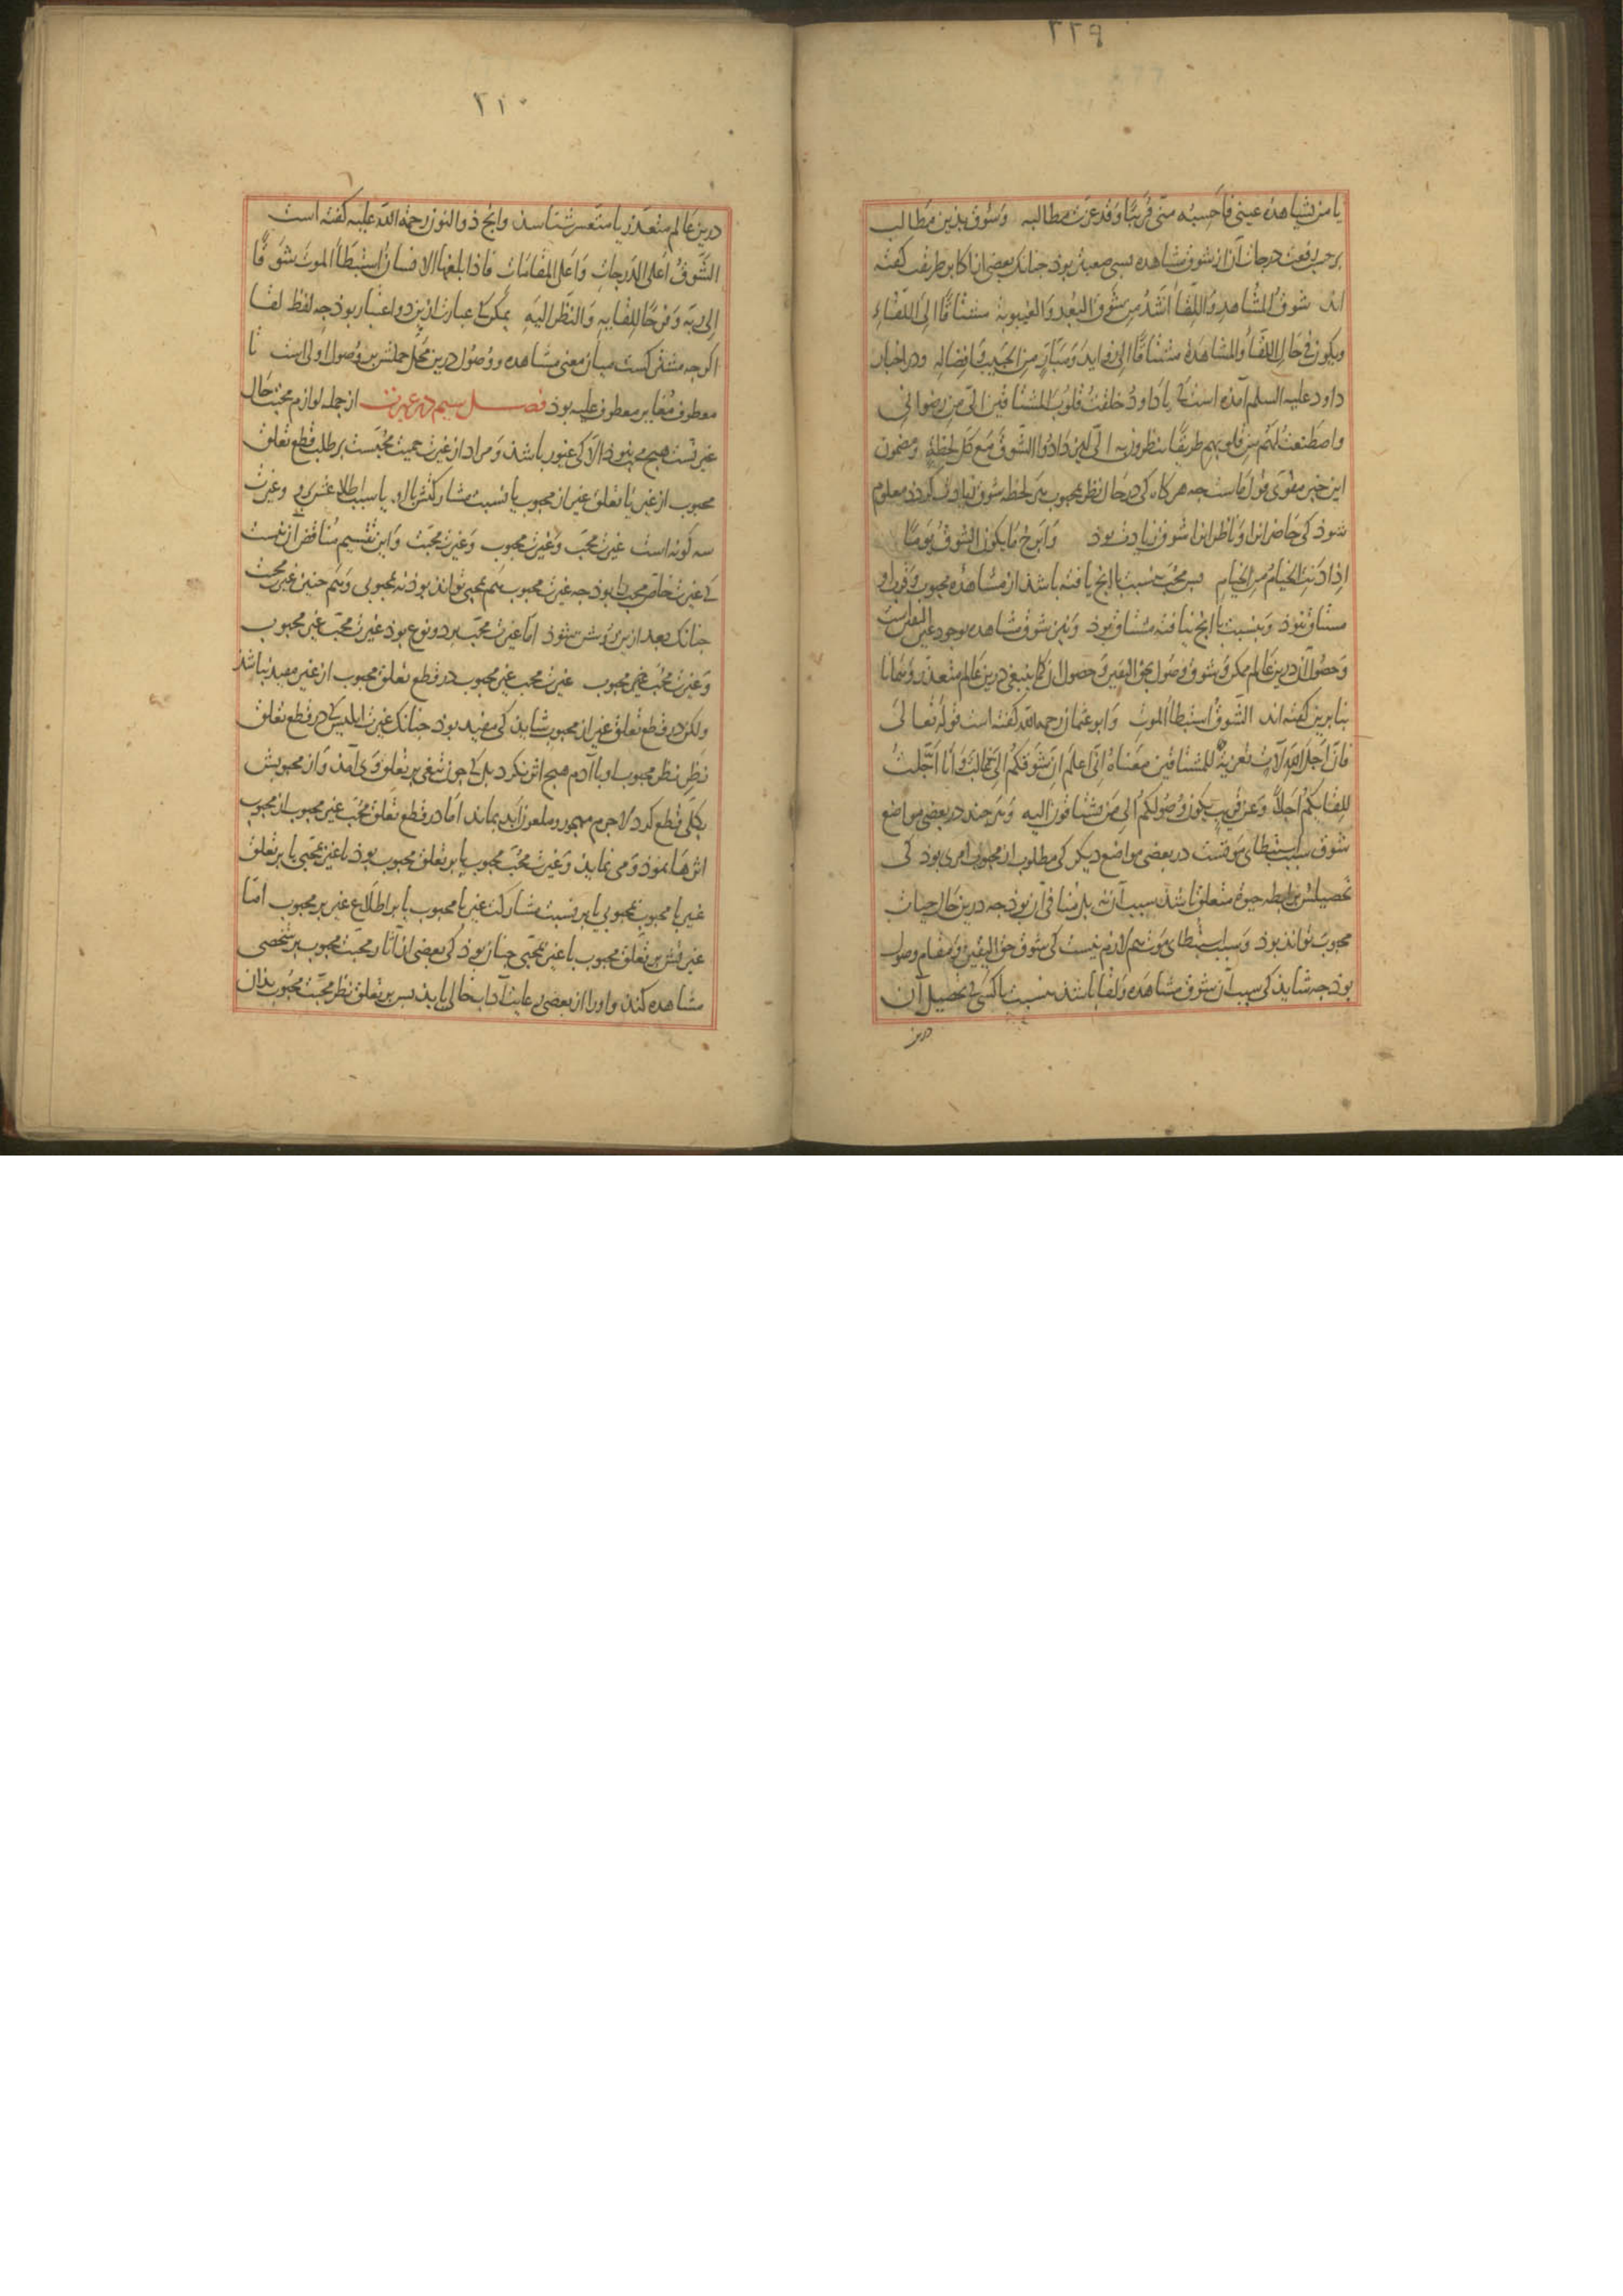 ٢٢٩
یا من یشاهده عینی فاحسبه منی قریبا وقد عزت مطالبه وشوق بذین مطالب
برحسب رفعت درجات آن از شوق مشاهده بسی صعبتر بوذ جنانک بعضی از اکابر طریقت کفته
اند شوق المشاهده واللقا اشد من شوق البعد والغیبوبة مشتاقا الی اللقاء
ویکون فی حال اللقا والمشاهدة مشتاقا الی زواید ومبار من الحبیب وافضاله ودر اخبار
داود علیه السلم آمذه است کی یا داود خلقت قلوب المشتاقین الی من رضوانی
واصطنعت لهم من قلوبهم طریقا ینظرون به الی لیزدادوا الشوق مع کل لحظة ومضمون
این خبر مقوی قول ماست جه هرکاه کی در حال نظر بمحبوب هر لحظه شوق زیادت کردد معلوم
شوذ کی حاضرانرا وناظرانرا شوق زیادت بوذ وابرح ما یکون الشوق یوما
اذا دنت الخیام من الخیام بس محب بنسبت با انج یافته باشذ از مشاهده محبوب وقرب او
مشتاق نبوذ وبنسبت با انج نیافته مشتاق بوذ ونیز شوق مشاهده بوجود عین الیقین است
وحصول آن درین عالم ممکن وشوق وصول بحق الیقین وحصول آن کما ینبغی درین عالم متعذر وهمانا
بنا برین کفته اند الشوق استبطاء الموت وابو عثمان رحمه الله کفته است قوله تعالی
فان اجل الله لآت تعزیة للمشتاقین معناه انی اعلم ان شوقکم الی غالب وانا اجلت
للقایکم اجلا وعن قریب یکون وصولکم الی من تشتاقون الیه وهر جند در بعضی مواضع
شوق سبب استبطای موتست در بعضی مواضع دیکر کی مطلوب از محبوب امری بوذ کی
تحصیلش برابطه حیوة متعلق باشذ سبب آن نه بل منافی آن بوذ جه درین حال حیات
محبوب تواند بوذ وسبب استبطای موت هم لازم نیست کی شوق حق الیقین ومقام وصول
بوذ جه شاید کی سبب آن شوق مشاهده ولقا باشذ بنسبت با کسی کی تحصیل آن
درین
٢١٠
درین عالم متعذر یا متعسر شناسد وانج ذوالنون رحمة الله علیه کفته است
الشوق اعلی الدرجات واعلی المقامات فاذا بلغها الانسان استبطأ الموت شوقا
الی ربه وفرحا للقایه والنظر الیه ممکن کی عبارت ازین دو اعتبار بوذ جه لفظ لقا
اکرجه مشترکست میان معنی مشاهده ووصول درین محل حملش بر وصول اولی است تا
معطوف مغایر معطوف علیه بوذ فصل سیم در غیرت از جمله لوازم محبت حال
غیرتست هیچ محب نبوذ الا کی غیور باشذ ومراد از غیرت حمیت محبست بر طلب قطع تعلق
محبوب از غیر یا تعلق غیر از محبوب یا نسبت مشارکتش با او یا سبب اطلاعش بر وی وغیرت
سه کونه است غیرت محب وغیرت محبوب وغیرت محبت واین تقسیم مناقض آن نیست
کی غیرت خاص محب را بوذ جه غیرت محبوب هم بمحبی تواند بوذ نه بمحبوبی وهم جنین غیرت محبت
جنانک بعد ازین روشن شوذ اما غیرت محب بر دو نوع بوذ غیرت محب غیر محبوب
وغیرت محب محبوب غیرت محب غیر محبوب در قطع تعلق محبوب از غیر مفید نباشذ
ولکن در قطع تعلق غیر از محبوب شاید کی مفید بوذ جنانک غیرت ابلیس کی در قطع تعلق
نظر محبوب او با آدم هیچ اثر نکرد بل کی جون تیغی بر تعلق وی آمذ واز محبوبش
بکلی قطع کرد لاجرم مهجور وملعون ابد بماند اما در قطع تعلق محب غیر محبوب از محبوب
اثرها نموذ ومی نماید وغیرت محب محبوب یا بر تعلق محبوب بوذ با غیر بمحبی یا بر تعلق
غیر با محبوب بمحبوبی یا بر نسبت مشارکت غیر با محبوب یا بر اطلاع غیر بر محبوب اما
غیرتش بر تعلق محبوب با غیر بمحبی جنان بوذ کی بعضی از آثار محبت محبوب بر شخصی
مشاهده کند واورا از بعضی رعایت آداب خالی یابد بس بر تعلق نظر محبت محبوب بذان